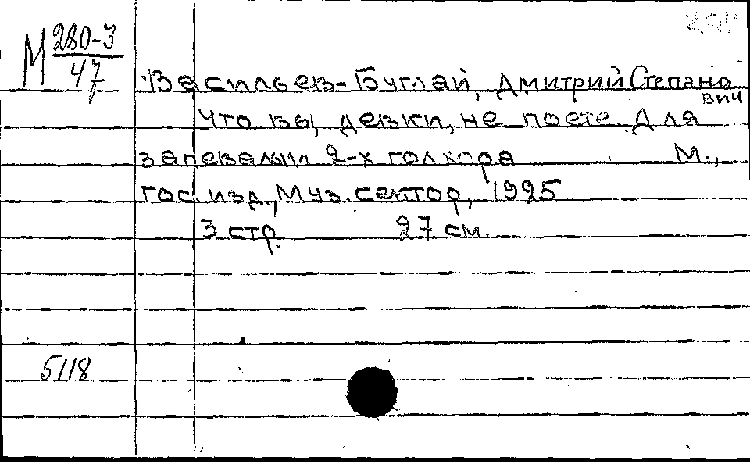 М 280-3
47
Васильев-Буглай, Дмитрий Степано
вич
Что вы, девки, не поете. Для
запевалы и 2-х гол хора М.,
гос. изд., Муз. сектор, 1925
3 стр. 27 см.
5118